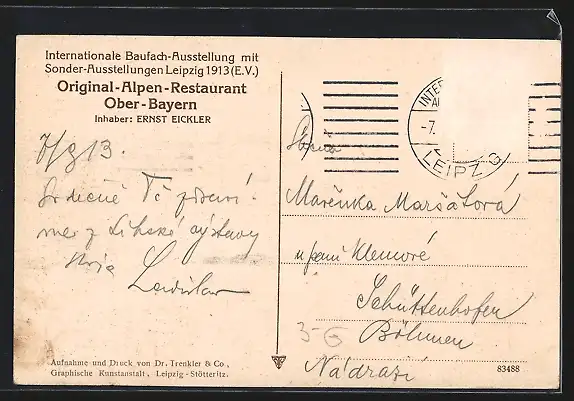 Internationale Baufach-Ausstellung mit
Sonder-Ausstellungen Leipzig 1913 (E.V.)
Original-Alpen-Restaurant
Ober-Bayern
Inhaber: ERNST EICKLER
7/8 13.
Srdečně Tě zdraví
z Lipské výstavy
strýc Ladislav
Aufnahme und Druck von Dr. Trenkler & Co.,
Graphische Kunstanstalt, Leipzig-Stötteritz.
INTER
-7.
LEIPZ
Slečna
Mařenka Maršátová
u paní Klemové
Schüttenhofen
Böhmen
Nádraží
83488